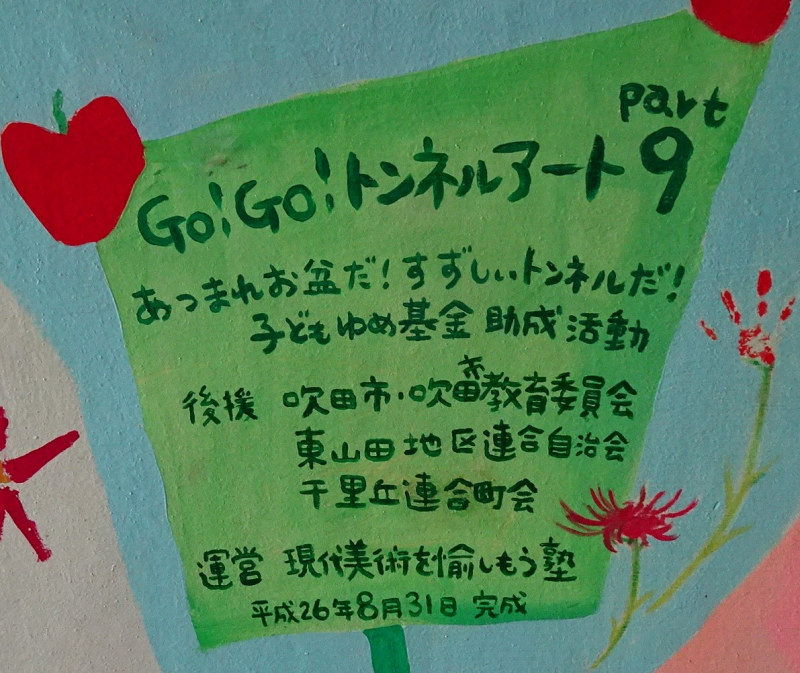 part
Go!Go!トンネルアート9
あつまれお盆だ!すずしいトンネルだ!
子どもゆめ基金 助成活動
後援 吹田市・吹田市教育委員会
東山田地区連合自治会
千里丘連合町会
運営 現代美術を愉しもう塾
平成26年8月31日 完成